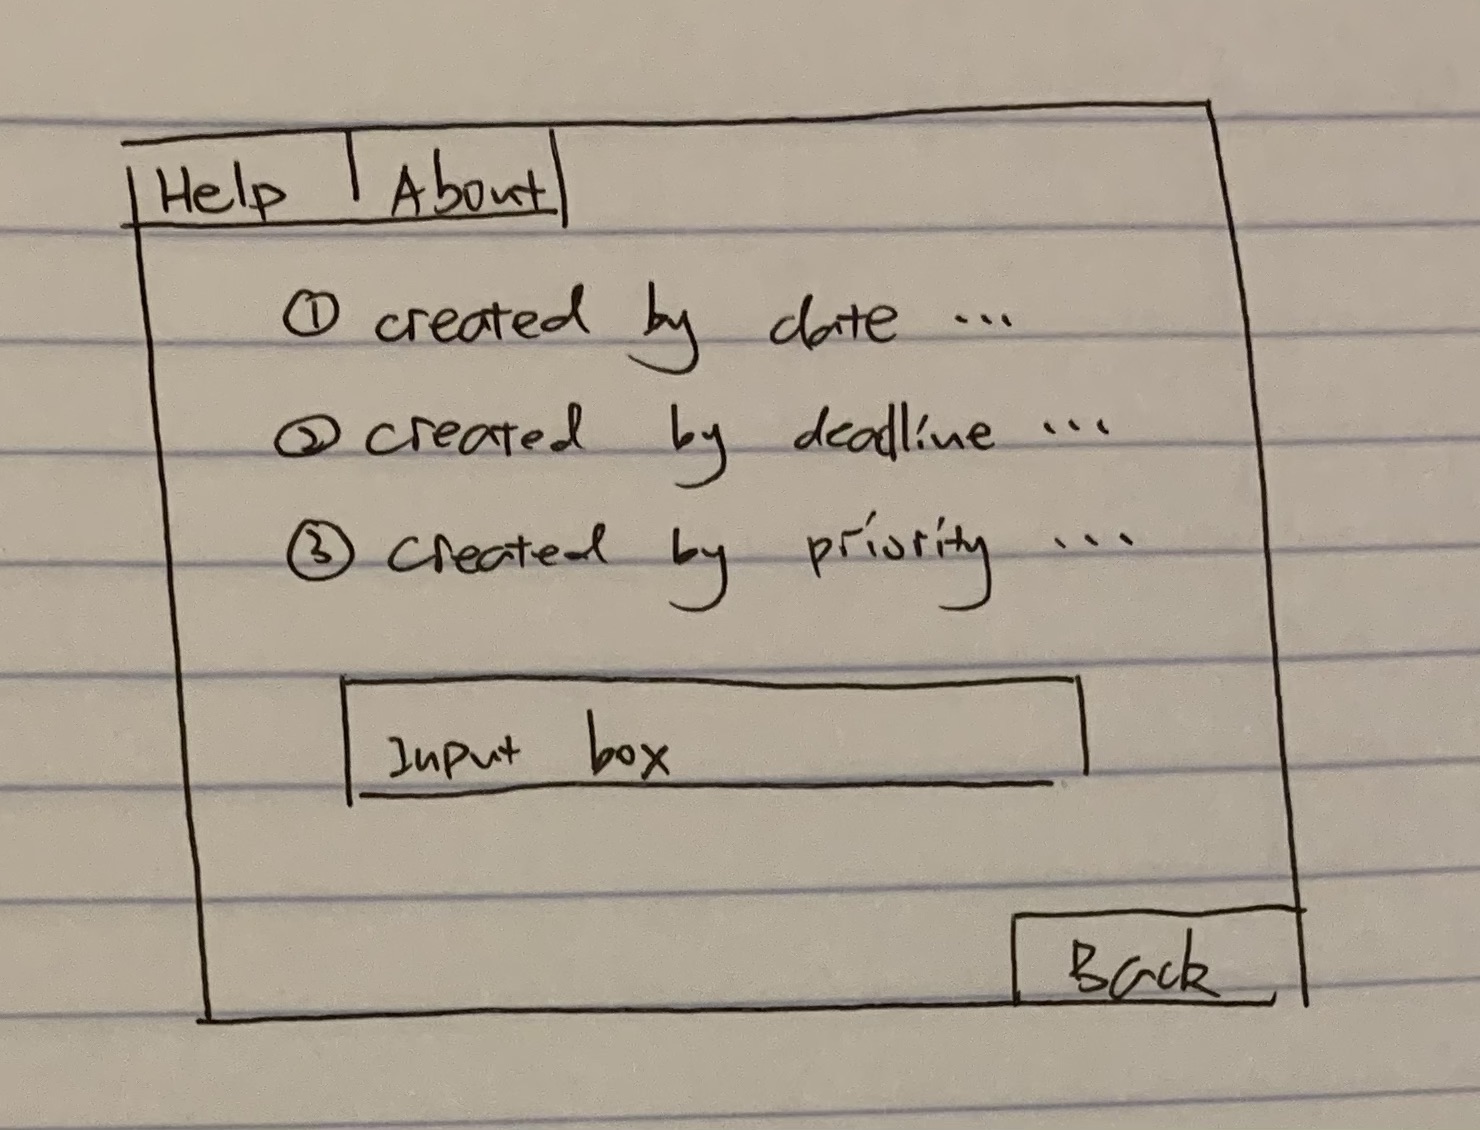 Help About
① created by date ...
② created by deadline ...
③ created by priority ...
Input box
Back